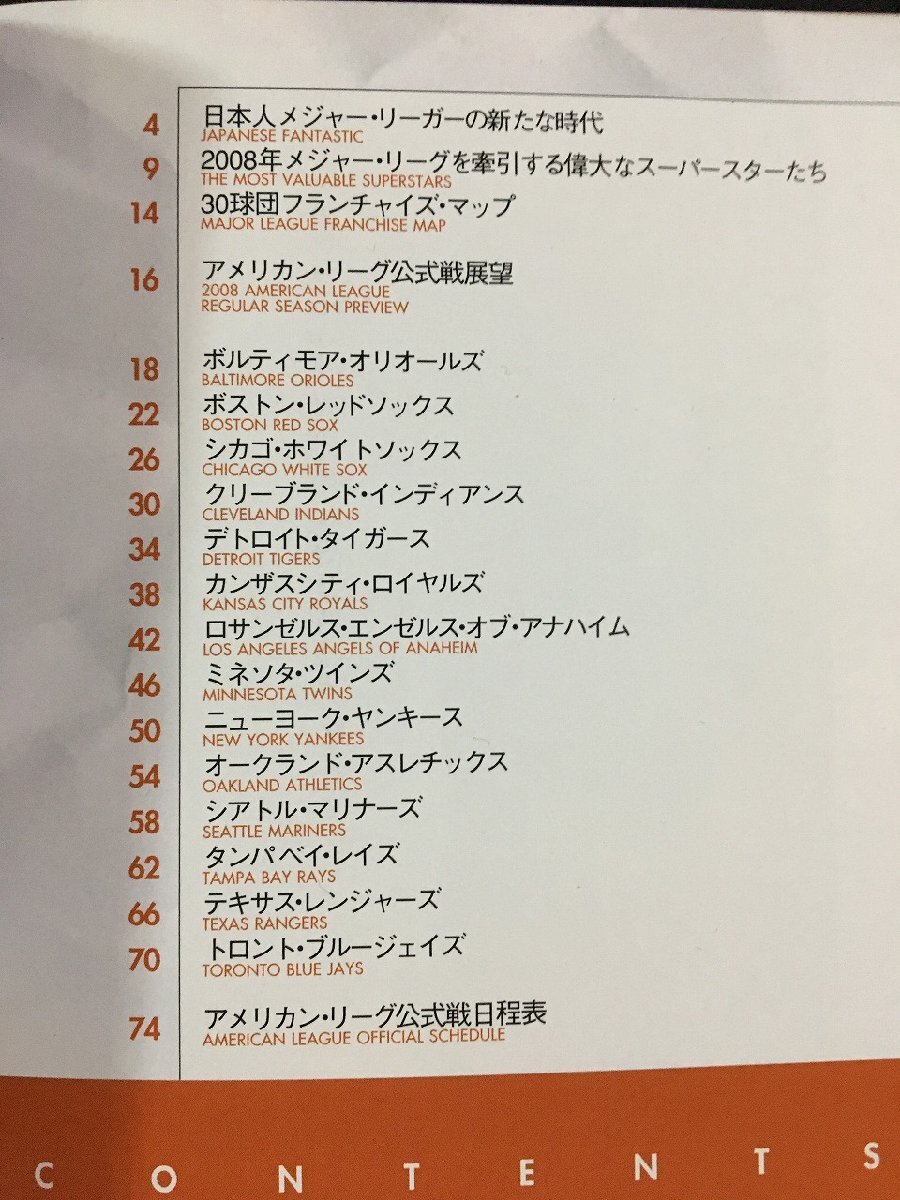 4 日本人メジャー・リーガーの新たな時代
JAPANESE FANTASTIC
9 2008年メジャー・リーグを牽引する偉大なスーパースターたち
THE MOST VALUABLE SUPERSTARS
14 30球団フランチャイズ・マップ
MAJOR LEAGUE FRANCHISE MAP
16 アメリカン・リーグ公式戦展望
2008 AMERICAN LEAGUE
REGULAR SEASON PREVIEW
18 ボルティモア・オリオールズ
BALTIMORE ORIOLES
22 ボストン・レッドソックス
BOSTON RED SOX
26 シカゴ・ホワイトソックス
CHICAGO WHITE SOX
30 クリーブランド・インディアンス
CLEVELAND INDIANS
34 デトロイト・タイガース
DETROIT TIGERS
38 カンザスシティ・ロイヤルズ
KANSAS CITY ROYALS
42 ロサンゼルス・エンゼルス・オブ・アナハイム
LOS ANGELES ANGELS OF ANAHEIM
46 ミネソタ・ツインズ
MINNESOTA TWINS
50 ニューヨーク・ヤンキース
NEW YORK YANKEES
54 オークランド・アスレチックス
OAKLAND ATHLETICS
58 シアトル・マリナーズ
SEATTLE MARINERS
62 タンパベイ・レイズ
TAMPA BAY RAYS
66 テキサス・レンジャーズ
TEXAS RANGERS
70 トロント・ブルージェイズ
TORONTO BLUE JAYS
74 アメリカン・リーグ公式戦日程表
AMERICAN LEAGUE OFFICIAL SCHEDULE
CONTENTS